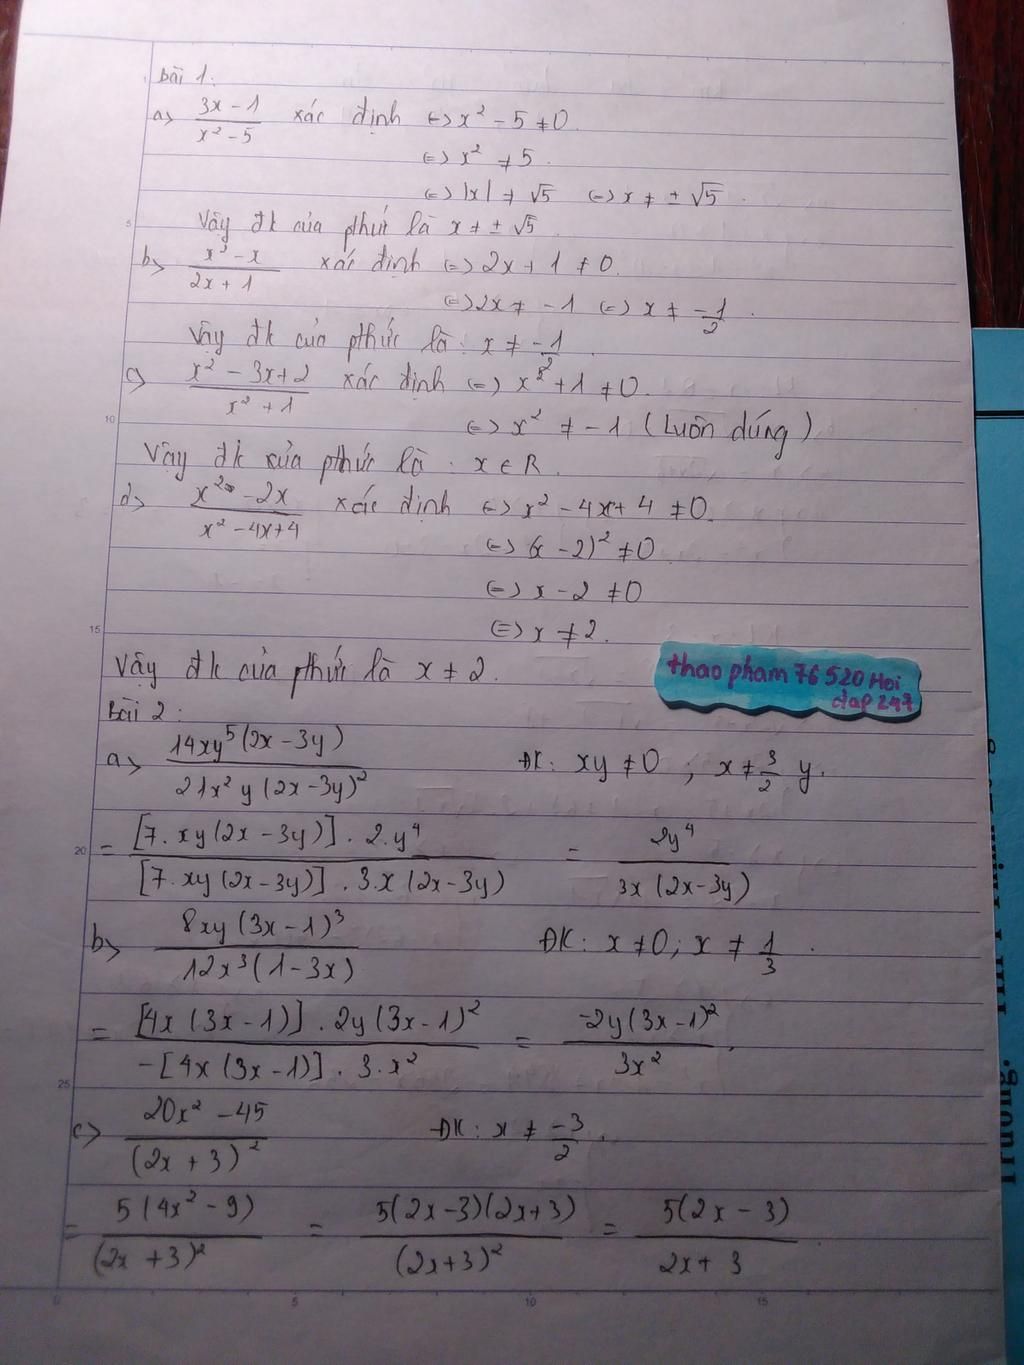 Bài 1:
a> (3x - 1)/(x² - 5) xác định <=> x² - 5 ≠ 0.
<=> x² ≠ 5.
<=> |x| ≠ √5 <=> x ≠ ± √5.
5
Vậy đk của pthức là x ≠ ± √5.
b> (x³ - x)/(2x + 1) xác định <=> 2x + 1 ≠ 0.
<=> 2x ≠ -1 <=> x ≠ -1/2.
Vậy đk của pthức là: x ≠ -1/2.
c> (x² - 3x + 2)/(x² + 1) xác định <=> x² + 1 ≠ 0.
10
<=> x² ≠ -1 (Luôn đúng)
Vậy đk của pthức là: x ∈ R.
d> (x² - 2x)/(x² - 4x + 4) xác định <=> x² - 4x + 4 ≠ 0.
<=> (x - 2)² ≠ 0
<=> x - 2 ≠ 0
15
<=> x ≠ 2.
Vậy đk của pthức là x ≠ 2.
thao pham 76 520 Hoi
dap 247
Bài 2:
a> 14xy⁵(2x - 3y)/21x²y(2x - 3y)² ĐK: xy ≠ 0; x ≠ 3/2 y.
20
= [7.xy(2x - 3y)].2.y⁴/[7.xy(2x - 3y)].3.x(2x - 3y) = 2y⁴/3x(2x - 3y)
b> 8xy(3x - 1)³/12x³(1 - 3x) ĐK: x ≠ 0; x ≠ 1/3.
= [4x(3x - 1)].2y(3x - 1)²/-[4x(3x - 1)].3.x² = -2y(3x - 1)²/3x².
25
c> (20x² - 45)/(2x + 3)² ĐK: x ≠ -3/2.
= 5(4x² - 9)/(2x + 3)² = 5(2x - 3)(2x + 3)/(2x + 3)² = 5(2x - 3)/(2x + 3)
0 5 10 15
Trương.